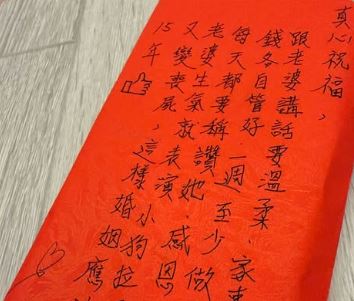 真心祝福，
跟老婆講話要溫柔、家事
錢各自管好、一週至少做
每天都要稱讚她、感恩
老婆生氣就表演小狗拉
又變喪屍，這樣婚姻應
15年